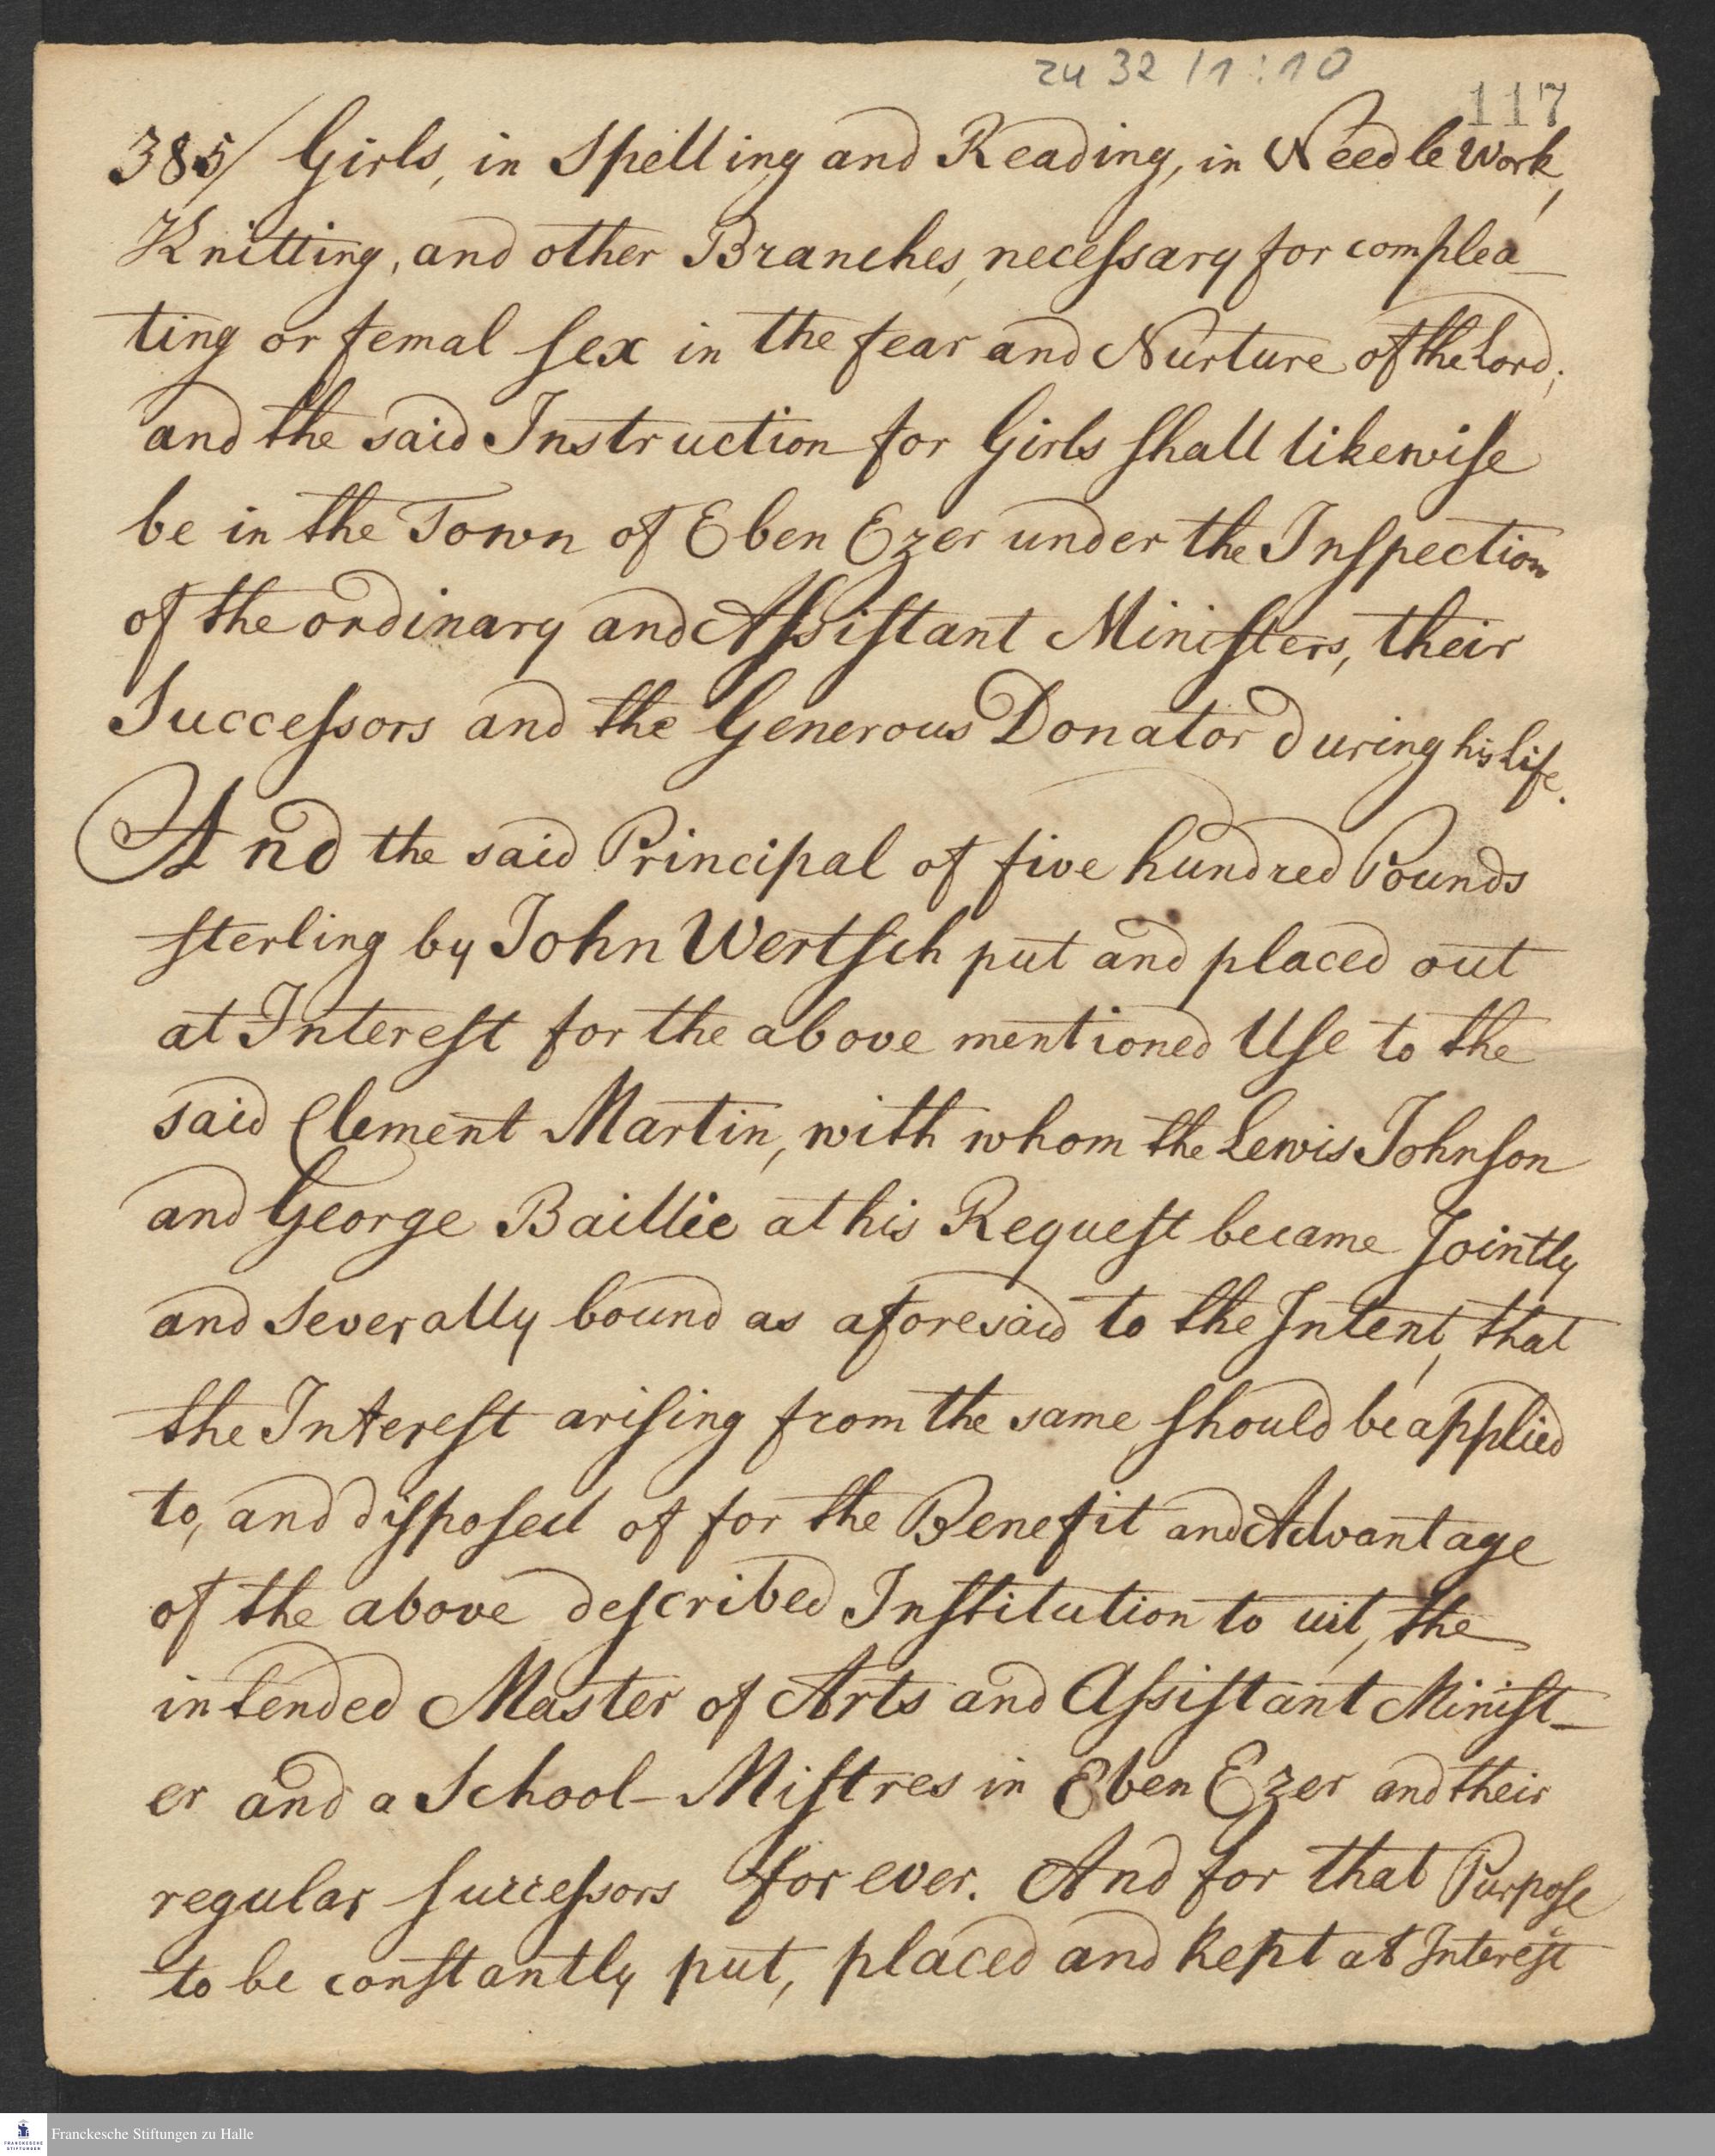 zu 32 11:10
117
385/ Girls, in Spelling and Reading, in Needle Work,
Knitting, and other Branches, necessary for complea_
ting or femal sex in the fear and Nurture of the Lord;
and the said Instruction for Girls shall likewise
be in the Town of Eben Ezer under the Inspection
of the ordinary and Assistant Ministers, their
Successors and the Generous Donator during his life.
And the said Principal of five hundred Pounds
sterling by John Wertsch put and placed out
at Interest for the above mentioned Use to the
said Clement Martin, with whom the Lewis Johnson
and George Baillie at his Request became Jointly
and Severally bound as aforesaid to the Intent, that
the Interest arising from the same should be applied
to, and disposed of for the Benefit and Advantage
of the above described Institution to wit, the
intended Master of Arts and Assistant Minist_
er and a School-Mistres in Eben Ezer and their
regular successors for ever. And for that Purpose
to be constantly put, placed and kept at Interest
FRANCKESCHE
STIFTUNGEN
Franckesche Stiftungen zu Halle